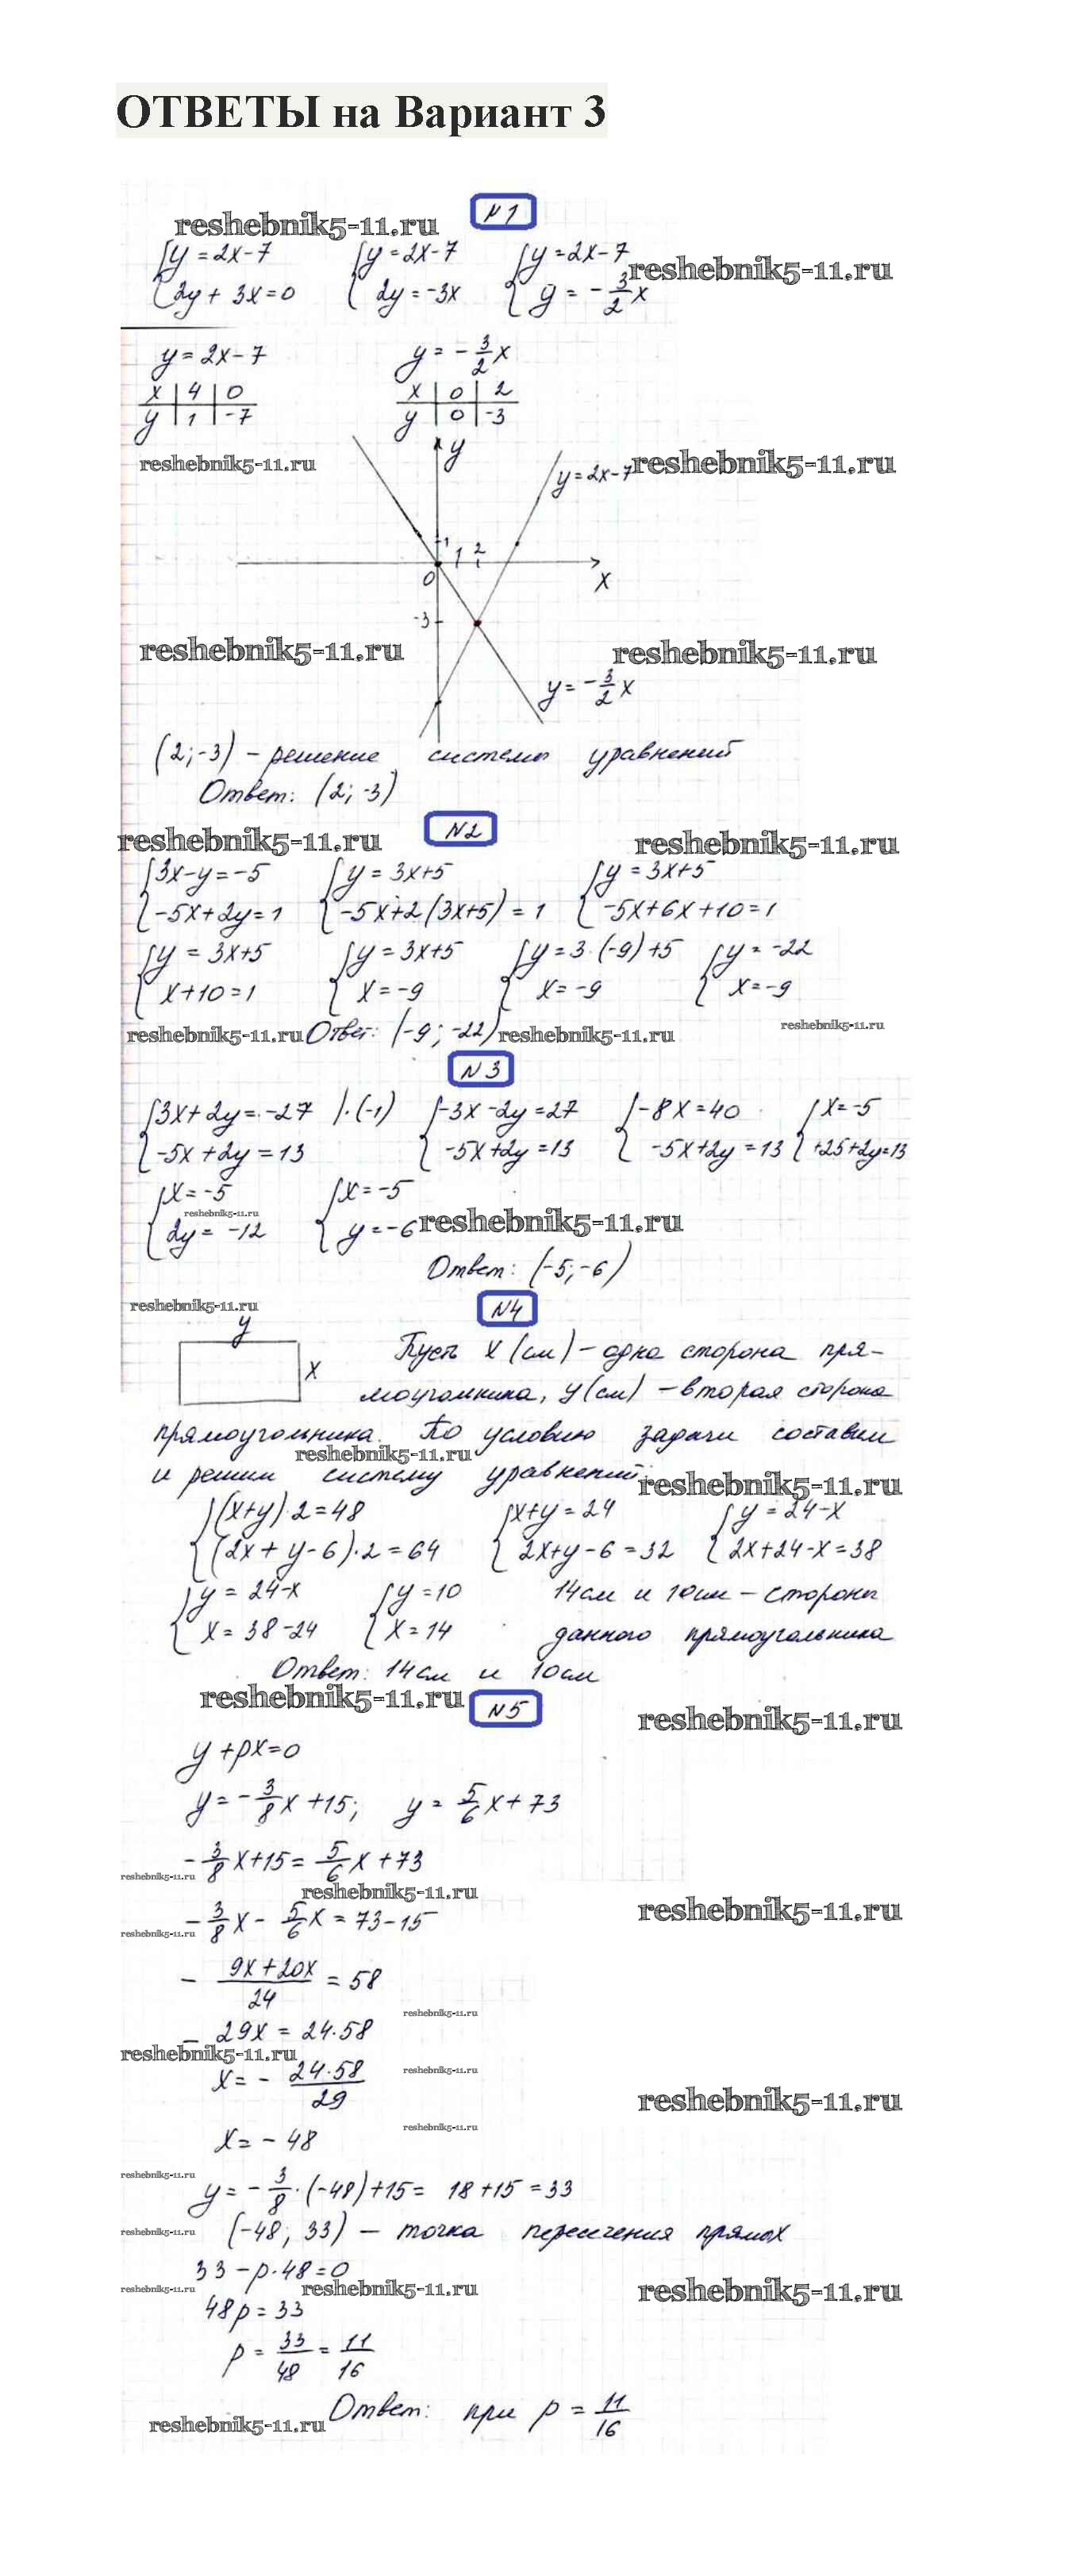 ОТВЕТЫ на Вариант 3
№1
reshebnik5-11.ru
{y = 2x-7 {y = 2x-7 {y = 2x-7
reshebnik5-11.ru
{2y + 3x = 0 {2y = -3x {y = -3/2 x
y = 2x-7 y = -3/2 x
x | 4 | 0 x | 0 | 2
y | 1 | -7 y | 0 | -3
reshebnik5-11.ru
y
y = 2x-7
reshebnik5-11.ru
1
1 2
0
x
-3
reshebnik5-11.ru
reshebnik5-11.ru
y = -3/2 x
(2; -3) - решение системы уравнений
Ответ: (2; -3)
№2
reshebnik5-11.ru
reshebnik5-11.ru
{3x-y = -5 {y = 3x+5 {y = 3x+5
{-5x+2y = 1 {-5x+2(3x+5) = 1 {-5x+6x+10 = 1
{y = 3x+5 {y = 3x+5 {y = 3·(-9)+5 {y = -22
{x+10 = 1 {x = -9 {x = -9 {x = -9
reshebnik5-11.ru Ответ: (-9; -22) reshebnik5-11.ru reshebnik5-11.ru
№3
{3x+2y = -27 |·(-1) {-3x-2y = 27 {-8x = 40 {x = -5
{-5x+2y = 13 {-5x+2y = 13 {-5x+2y = 13 {+25+2y = 13
{x = -5 {x = -5
reshebnik5-11.ru
{2y = -12 {y = -6 reshebnik5-11.ru
Ответ: (-5; -6)
reshebnik5-11.ru
№4
y
x
Пусть x (см) - одна сторона пря-
моугольника, y (см) - вторая сторона
прямоугольника. По условию задачи составим
reshebnik5-11.ru
и решим систему уравнений:
reshebnik5-11.ru
{(x+y)·2 = 48 {x+y = 24 {y = 24-x
{(2x+y-6)·2 = 64 {2x+y-6 = 32 {2x+24-x = 38
{y = 24-x {y = 10 14см и 10см - стороны
{x = 38-24 {x = 14 данного прямоугольника
Ответ: 14см и 10см
reshebnik5-11.ru
№5
reshebnik5-11.ru
y + px = 0
y = -3/8 x + 15; y = 5/6 x + 73
-3/8 x + 15 = 5/6 x + 73
reshebnik5-11.ru
reshebnik5-11.ru
reshebnik5-11.ru
-3/8 x - 5/6 x = 73-15
reshebnik5-11.ru
- (9x+20x)/24 = 58
reshebnik5-11.ru
- 29x = 24·58
reshebnik5-11.ru
x = - (24·58)/29
reshebnik5-11.ru
reshebnik5-11.ru
x = -48
reshebnik5-11.ru
reshebnik5-11.ru
y = -3/8·(-48)+15 = 18+15 = 33
reshebnik5-11.ru
(-48; 33) - точка пересечения прямых
33-p·48 = 0
reshebnik5-11.ru
reshebnik5-11.ru
reshebnik5-11.ru
48p = 33
p = 33/48 = 11/16
reshebnik5-11.ru
Ответ: при p = 11/16